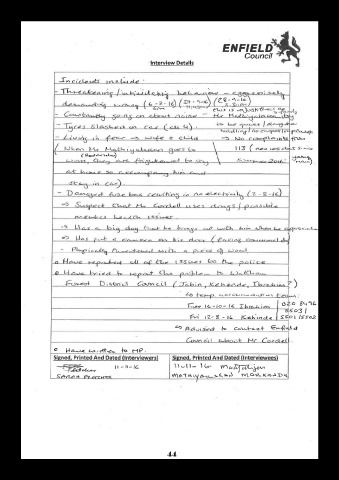 ENFIELD
Council
Interview Details
Incidents include:
- Threatening / intimidating behaviour - aggressively
demanding money (6-8-16)
- Constantly going on about noise - Mr Mathiyalagan
- Tyres slashed on car (all 4).
- Living in fear → wife & child → No complaints from
(When Mr Mathiyalagan goes to 113
work, they are frightened to stay
at home so accompany him and
stay in car).
- Damaged fuse box resulting in no electricity (2-8-16)
⇒ Suspect that Mr Cordell uses drugs / possible
mental health issues.
→ Has a big dog that he brings out with him when he
⇒ Has put a camera on his door (facing communal)
- Physically threatened with a piece of wood
o Have reported all of the issues to the police
o Have tried to report the problem to Waltham
Forest District Council (Jabin, Kehinde, Ibrahim?)
↳ temp accommodation team.
Tues 16-10-16 Ibrahim 020 8496
Fri 12-8-16 Kehinde 5501/5502
↳ Advised to contact Enfield
Council about Mr Cordell
o Have written to MP.
Signed, Printed And Dated (Interviewers) Signed, Printed And Dated (Interviewees)
11-11-16 11-11-16
SARAH FLETCHER MATHIYALAGAN MARKANDU
44